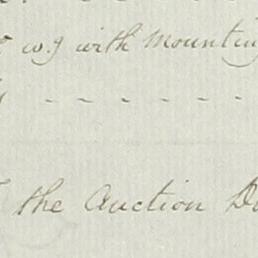 w.g with Mounting
- - - - - -
the Auction Du